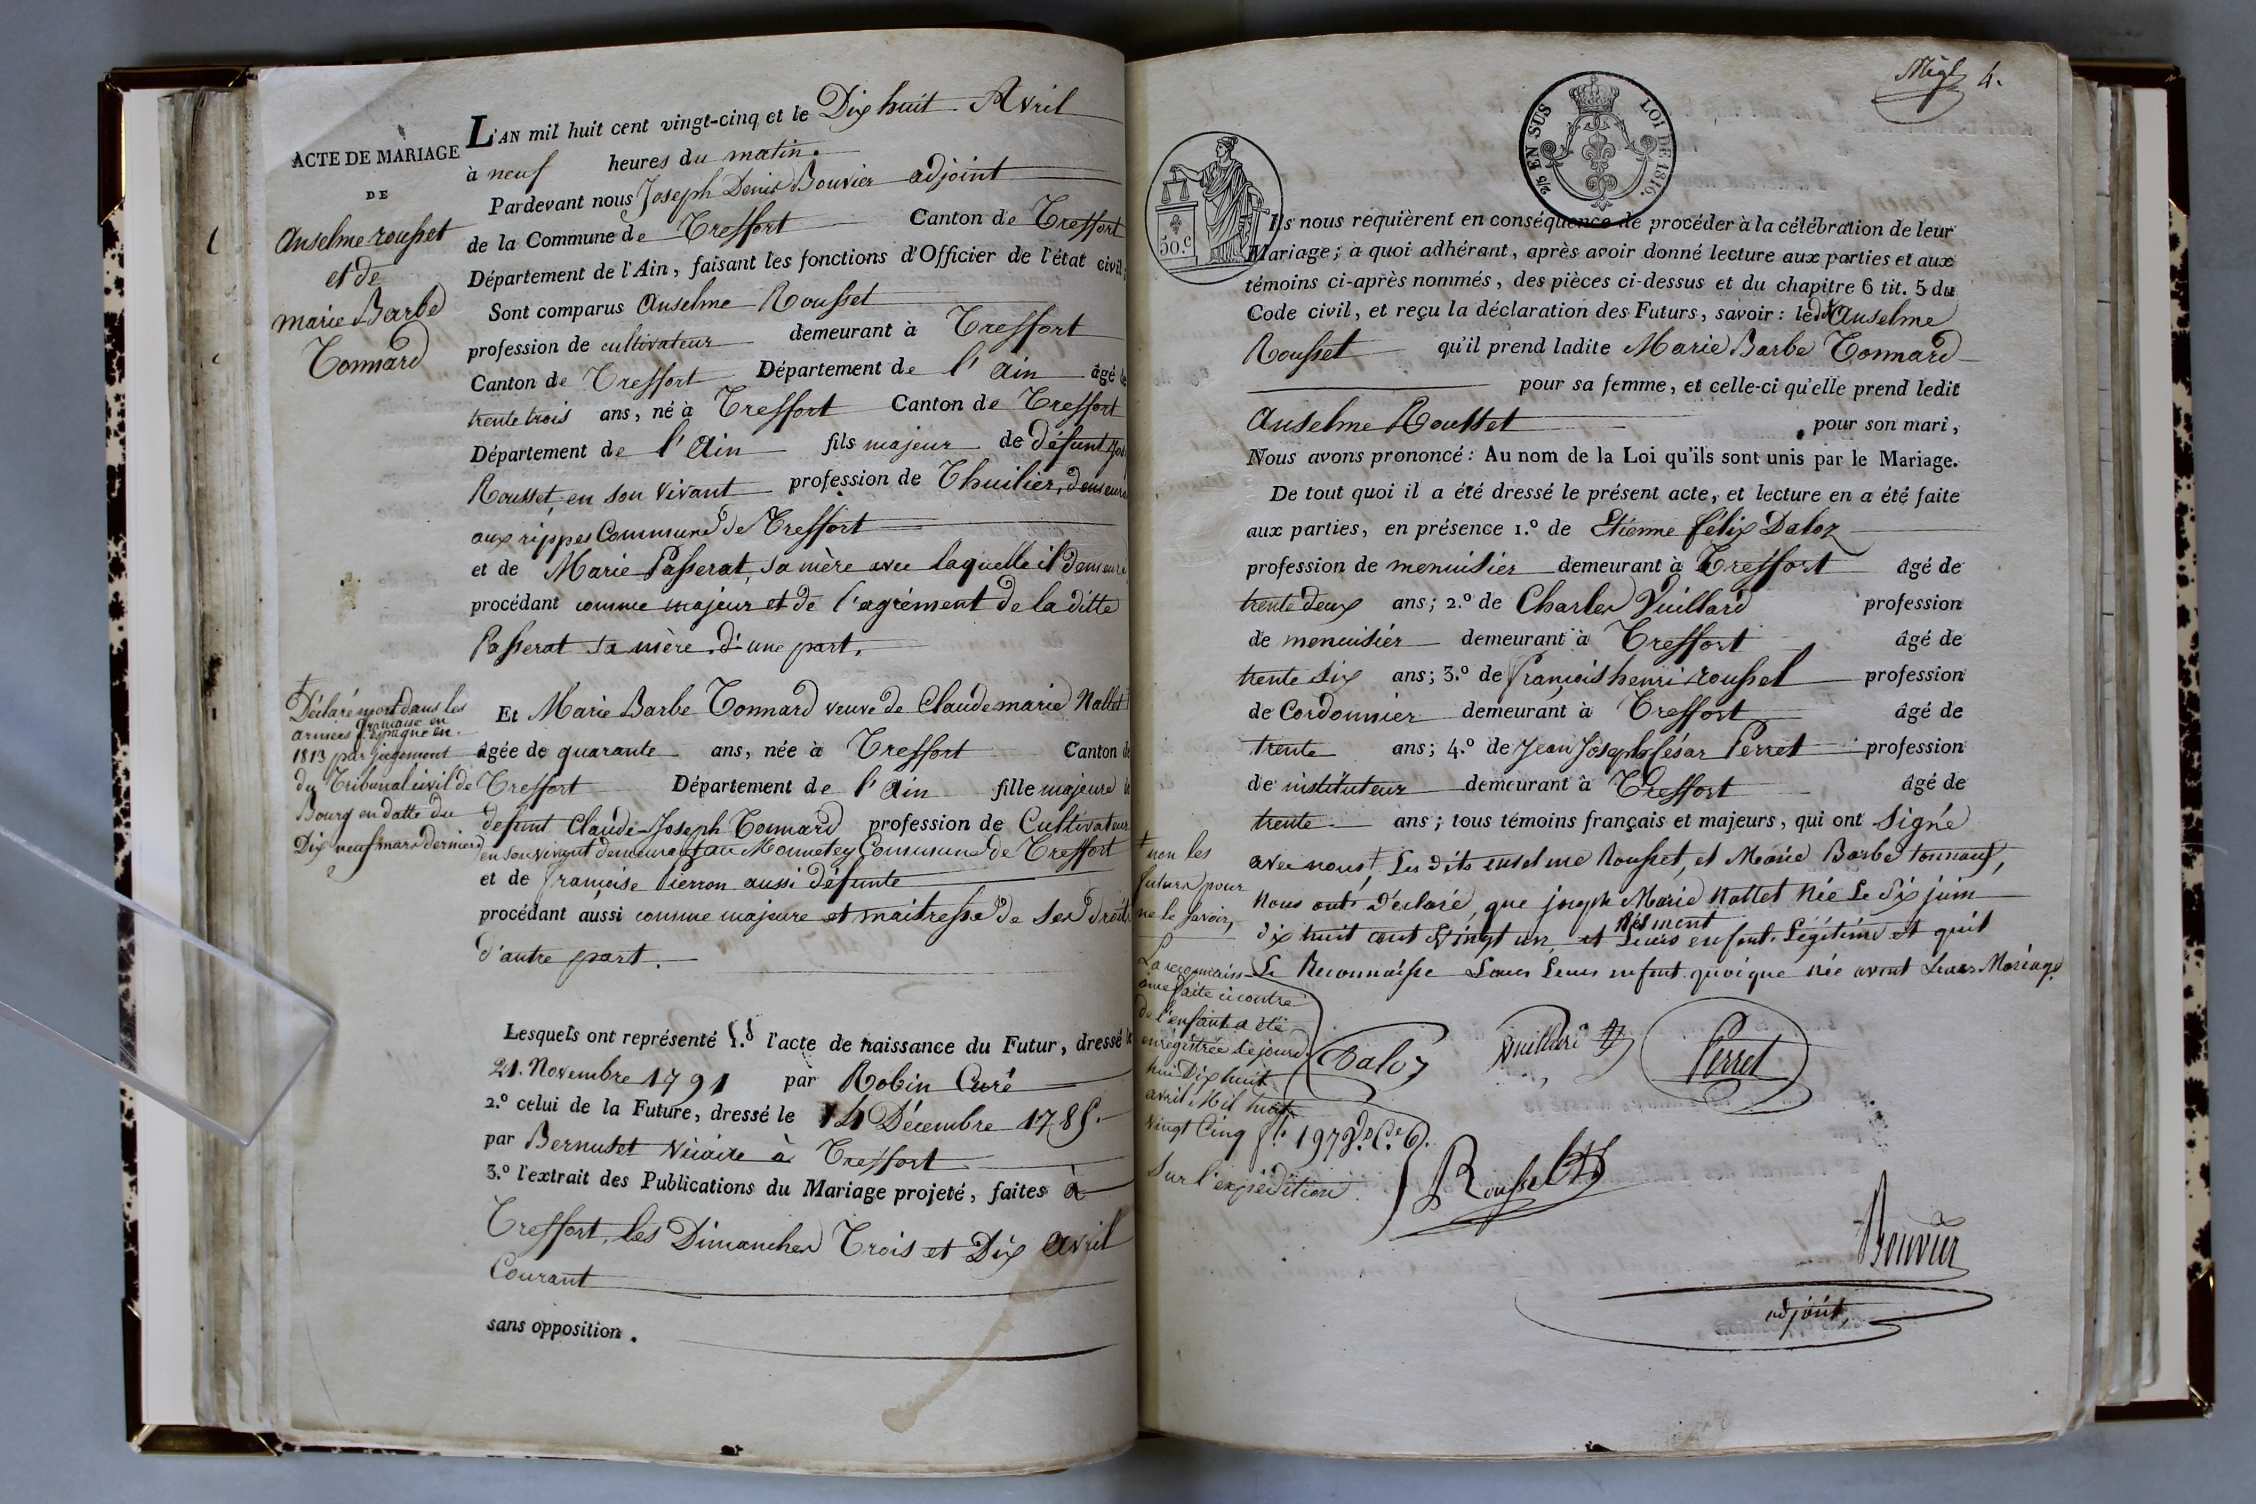 ACTE DE MARIAGE
DE
Anselme rousset
et de
marie Barbe
Tonnard
L'AN mil huit cent vingt-cinq et le Dix huit Avril
à neuf heures du matin.
Pardevant nous Joseph Denis Bouvier adjoint
de la Commune de Treffort Canton de Treffort
Département de l'Ain, faisant les fonctions d'Officier de l'état civil;
Sont comparus Anselme Rousset
profession de cultivateur demeurant à Treffort
Canton de Treffort Département de l'Ain âgé de
trente trois ans, né à Treffort Canton de Treffort
Département de l'Ain fils majeur de défunt
Rousset, en son vivant profession de Thuilier, demeurant
aux rippes Commune de Treffort
et de Marie Passerat, sa mère avec laquelle il demeure,
procédant comme majeur et de l'agrément de la ditte
Passerat sa mère. d'une part.
† Déclaré mort dans les
armées française en
d'Espagne en
1813 par jugement
du Tribunal civil de
Bourg en datte du
Dix neuf mars dernier
Et Marie Barbe Tonnard veuve de Claude marie Nallet †
âgée de quarante ans, née à Treffort Canton de
Treffort Département de l'Ain fille majeure de
défunt Claude-Joseph Tonnard profession de Cultivateur
en son vivant demeurant au Monnetey Commune de Treffort
et de françoise Pierron aussi défunte
procédant aussi comme majeure et maitresse de ses droits
d'autre part.
Lesquels ont représenté 1.º l'acte de naissance du Futur, dressé le
21. Novembre 1791 par Robin Curé
2.º celui de la Future, dressé le 14 Décembre 1785.
par Bernuset Vicaire à Treffort
3.º l'extrait des Publications du Mariage projeté, faites à
Treffort, les Dimanches Trois et Dix avril
Courant
sans opposition.
4.
2/5 EN SUS LOI DE 1816.
50.c
Ils nous requièrent en conséquence de procéder à la célébration de leur
Mariage; à quoi adhérant, après avoir donné lecture aux parties et aux
témoins ci-après nommés, des pièces ci-dessus et du chapitre 6 tit. 5 du
Code civil, et reçu la déclaration des Futurs, savoir: ledt Anselme
Rousset qu'il prend ladite Marie Barbe Tonnard
pour sa femme, et celle-ci qu'elle prend ledit
Anselme Rousset pour son mari,
Nous avons prononcé: Au nom de la Loi qu'ils sont unis par le Mariage.
De tout quoi il a été dressé le présent acte, et lecture en a été faite
aux parties, en présence 1.º de Etienne félix Daloz
profession de menuisier demeurant à Treffort âgé de
trente deux ans; 2.º de Charles Vuillard profession
de menuisier demeurant à Treffort âgé de
trente six ans; 3.º de françois henri rousset profession
de Cordonnier demeurant à Treffort âgé de
trente ans; 4.º de Jean Joseph César Perret profession
de instituteur demeurant à Treffort âgé de
trente ans; tous témoins français et majeurs, qui ont signé
avec nous † Les dits enselme Rousset, et Marie Barbe tonnard,
nous ont déclaré, que joseph Marie Nallet Née Le dix juin
dix huit cent vingt un, et Leurs enfent Légitime et quil
Le Reconnaisse Leurs enfent quoique née avent Leurs Mariage.
† non les
futurs pour
ne le savoir,
La reconnaiss-
ance faite ci contre
de l'enfant a été
enrégistrée ce jourd
hui Dix huit
avril Mil huit
vingt Cinq f.º 197
Sur l'expédition.
Daloz
Vuillard
Perret
Rousset
Bouvier
adjoint